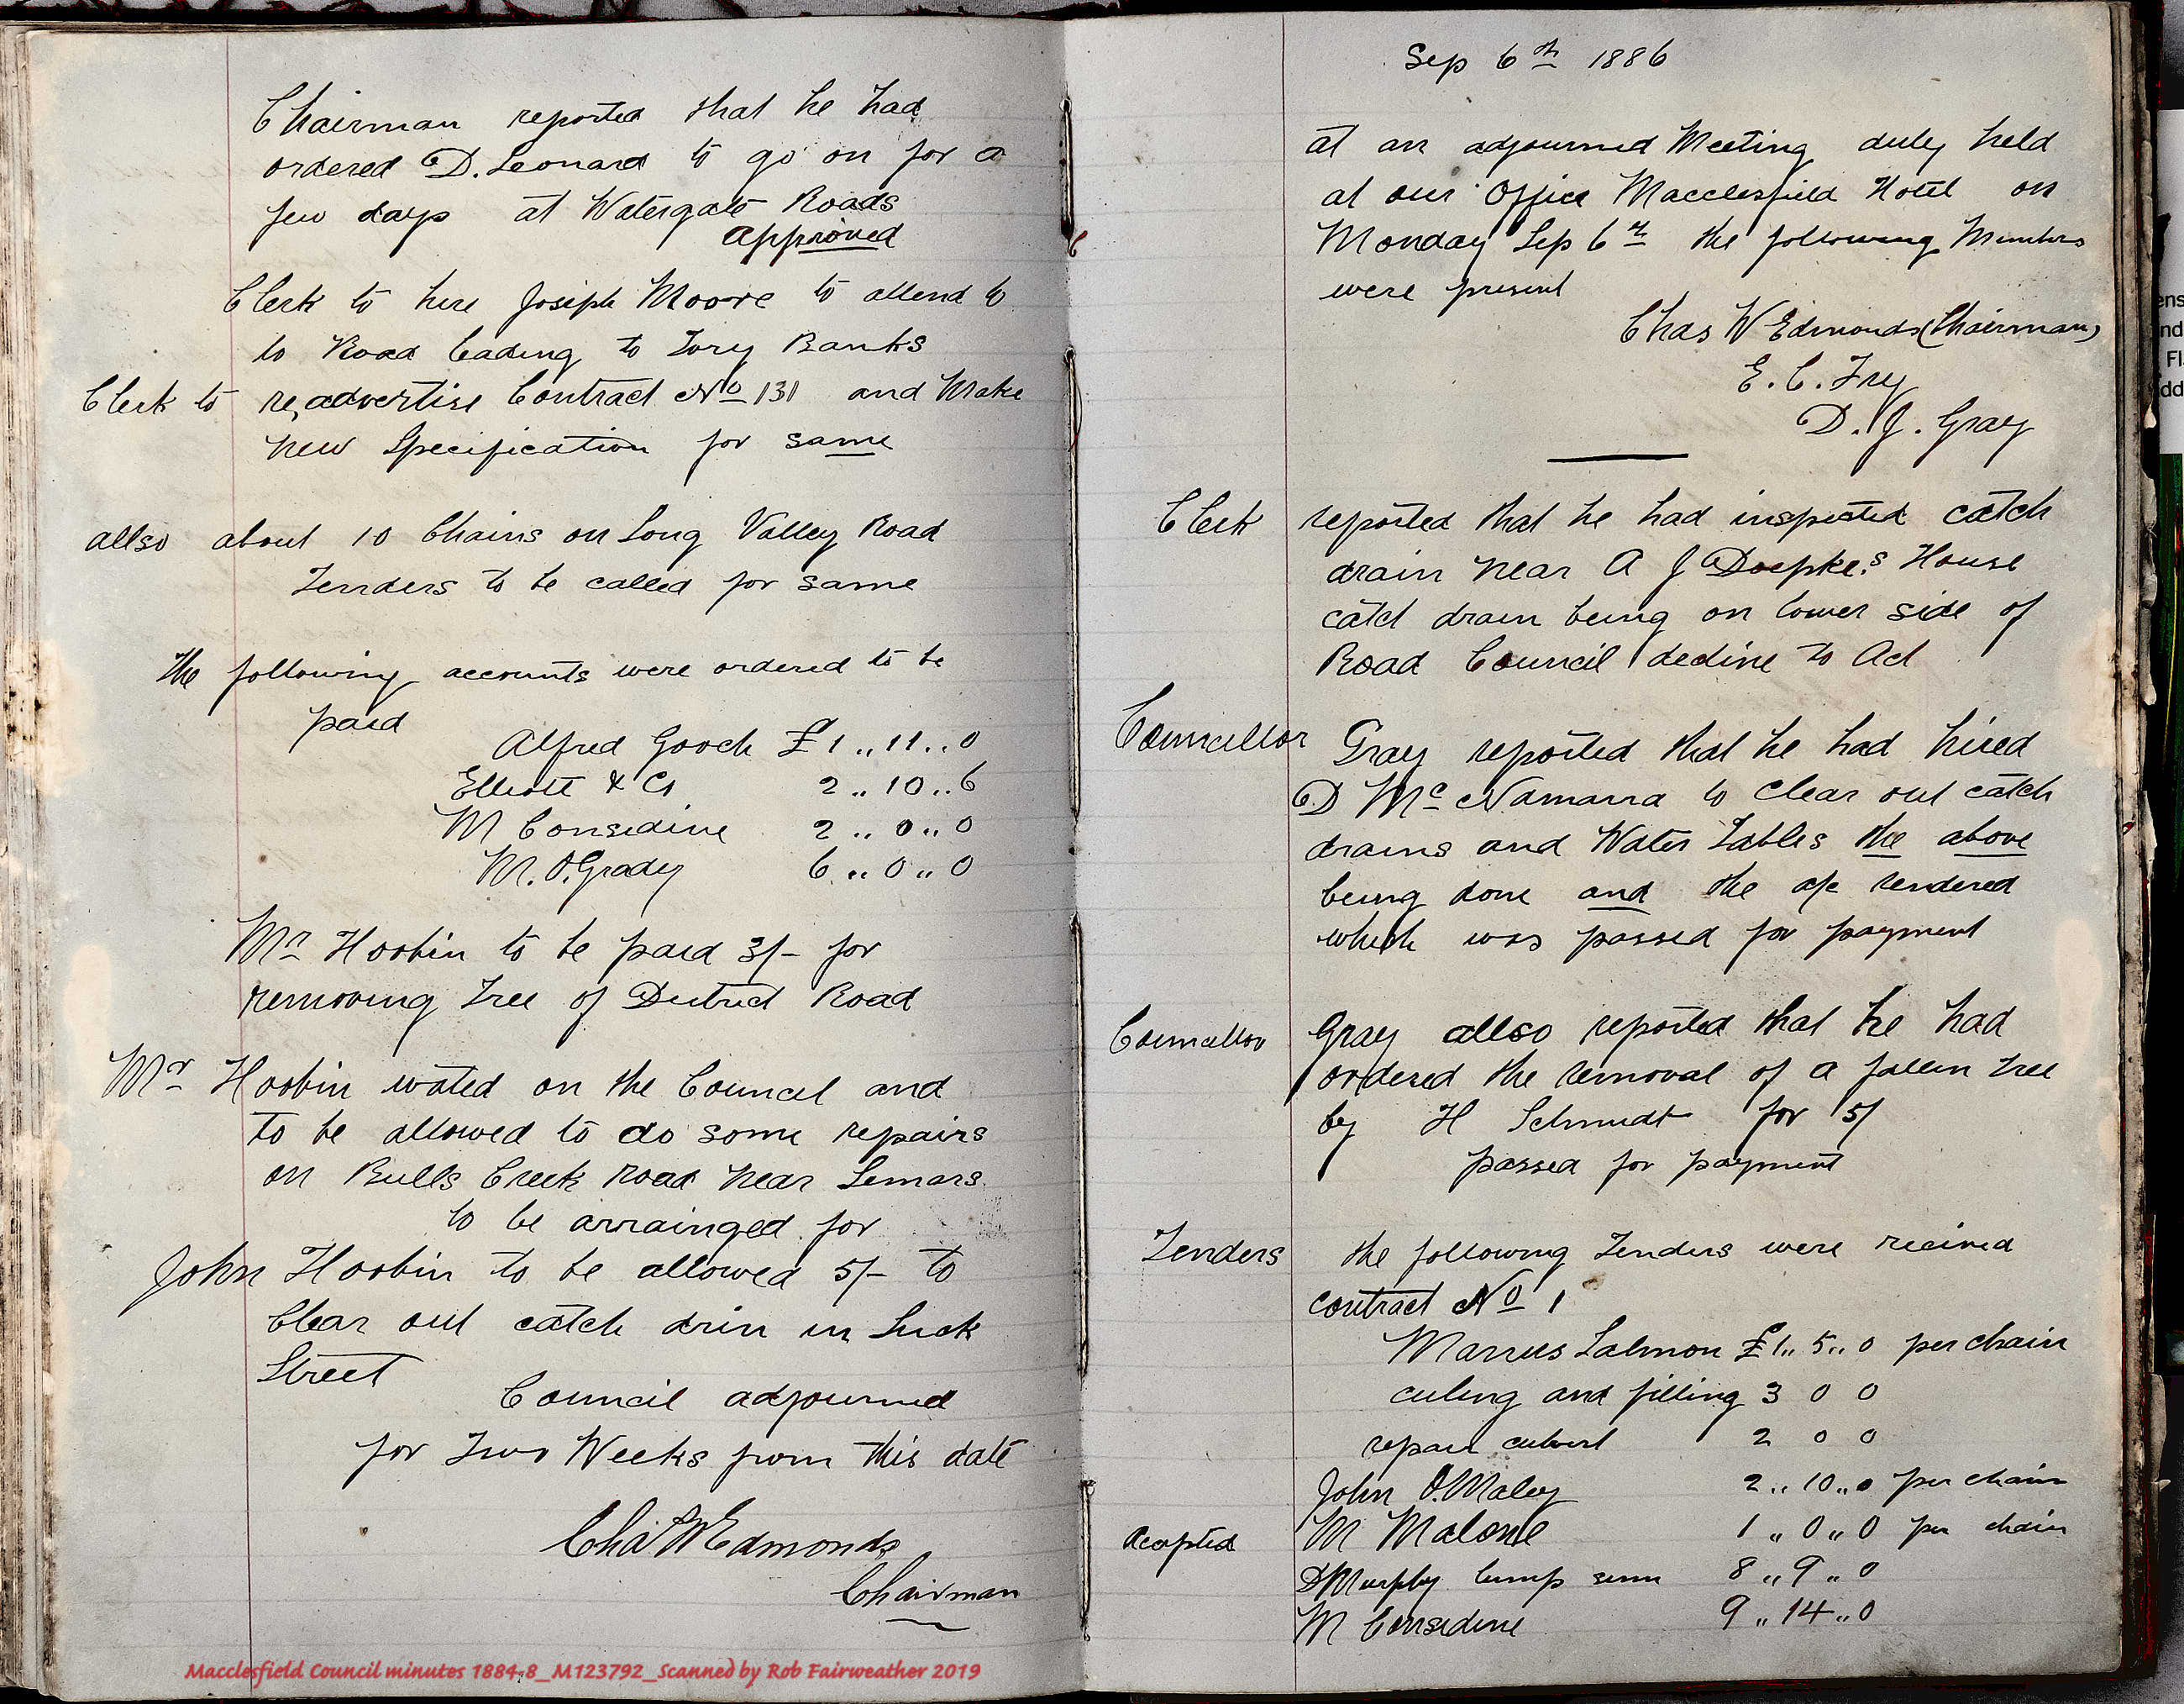 Chairman reported that he had
ordered D. Leonard to go on for a
few days at Watergate Roads
approved
Clerk to hire Joseph Moore to attend to
to Road leading to Tory Banks
Clerk to readvertise Contract No 131 and Make
new Specification for same
allso about 10 Chains on Long Valley Road
Tenders to be called for same
the following accounts were ordered to be
paid
Alfred Gooch £1 .. 11 .. 0
Elliott & Co 2 .. 10 .. 6
M Considine 2 .. 0 .. 0
M. O.Grady 6 .. 0 .. 0
Mr Hoobin to be paid 3/- for
removing Tree of District Road
Mr Hoobin wated on the Council and
to be allowed to do some repairs
on Bulls Creek Road near Lemars
to be arrainged for
John Hoobin to be allowed 5/- to
Clear out catch drin in Luck
Street
Council adjourned
for Two Weeks from this date
Chas W Edmonds
Chairman
Macclesfield Council minutes 1884-8_M123792_Scanned by Rob Fairweather 2019
Sep 6th 1886
at an adjourned Meeting duly held
at our Office Macclesfield Hotel on
Monday Sep 6th the following Members
were present
Chas W Edmonds (Chairman)
E. C. Fry
D. J. Gray
Clerk reported that he had inspected catch
drain near A J Doepke's House
catch drain being on lower side of
Road Council decline to Act
Councellor Gray reported that he had hired
D Mc Namarra to Clear out catch
drains and Water Tables the above
being done and the a/c rendered
which was passed for payment
Councellor Gray allso reported that he had
ordered the removal of a fallen tree
by H Schmidt for 5/
passed for payment
Tenders the following Tenders were recived
contract No 1
Marcus Salmon £1 .. 5 .. 0 per chain
and filling 3 0 0
repair culvert 2 0 0
John O.Maley 2 .. 10 .. 0 per chain
Accepted M Malone 1 .. 0 .. 0 per chain
D Murphy lump sum 8 .. 9 .. 0
M Considine 9 .. 14 .. 0